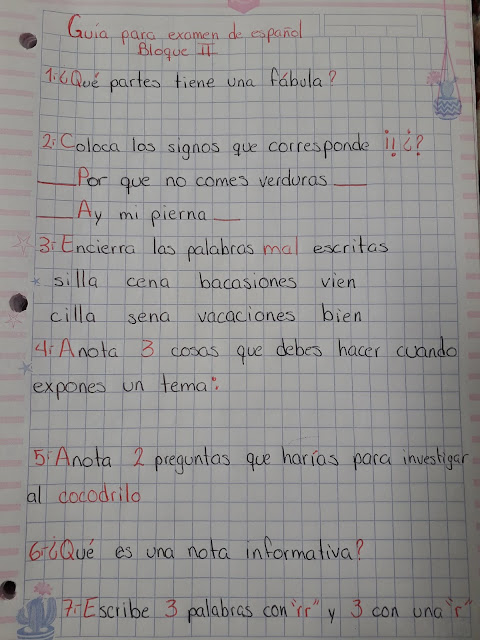 Guía para examen de español
Bloque II
1.-¿Qué partes tiene una fábula?
2.-Coloca los signos que corresponde ¡! ¿?
___Por que no comes verduras ___
___Ay mi pierna ___
3.-Encierra las palabras mal escritas
silla cena bacasiones vien
cilla sena vacaciones bien
4.-Anota 3 cosas que debes hacer cuando
expones un tema:
5.-Anota 2 preguntas que harías para investigar
al cocodrilo
6.-¿Qué es una nota informativa?
7.-Escribe 3 palabras con "rr" y 3 con una "r"